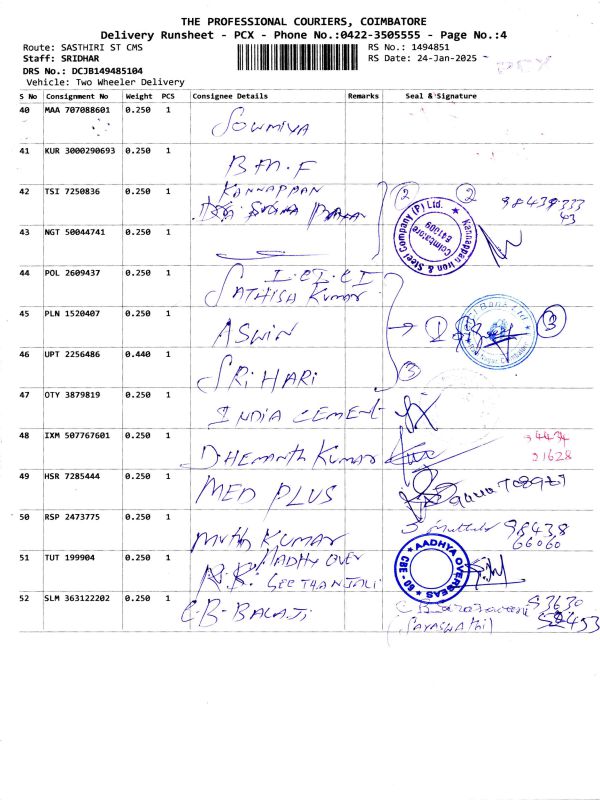 THE PROFESSIONAL COURIERS, COIMBATORE
Delivery Runsheet - PCX - Phone No.:0422-3505555 - Page No.:4
Route: SASTHIRI ST CMS
RS No.: 1494851
Staff: SRIDHAR
RS Date: 24-Jan-2025
DRS No.: DCJB149485104
Vehicle: Two Wheeler Delivery
S No Consignment No Weight PCS Consignee Details Remarks Seal & Signature
40 MAA 707088601 0.250 1 SOWMIYA
41 KUR 3000290693 0.250 1 B M. F
42 TSI 7250836 0.250 1 KANNAPPAN
2 2
Kannappan Iron & Steel Company (P) Ltd.
Coimbatore
641006
43 NGT 50044741 0.250 1
44 POL 2609437 0.250 1 I.CI.CI
SATHISH Kumar
45 PLN 1520407 0.250 1 ASWIN
1 3
46 UPT 2256486 0.440 1 SRI HARI
3
47 OTY 3879819 0.250 1 INDIA CEMENT
48 IXM 507767601 0.250 1 DHEMANTH KUMAR
21628
49 HSR 7285444 0.250 1 MED PLUS
50 RSP 2473775 0.250 1 MUTHU KUMAR
98438
66060
51 TUT 199904 0.250 1 AADHY OVER
R.R. GEETHANJALI
AADHYA OVERSEAS
CBE - 50
52 SLM 363122202 0.250 1 C.B- BALAJI
93630
(SARASWATHI)